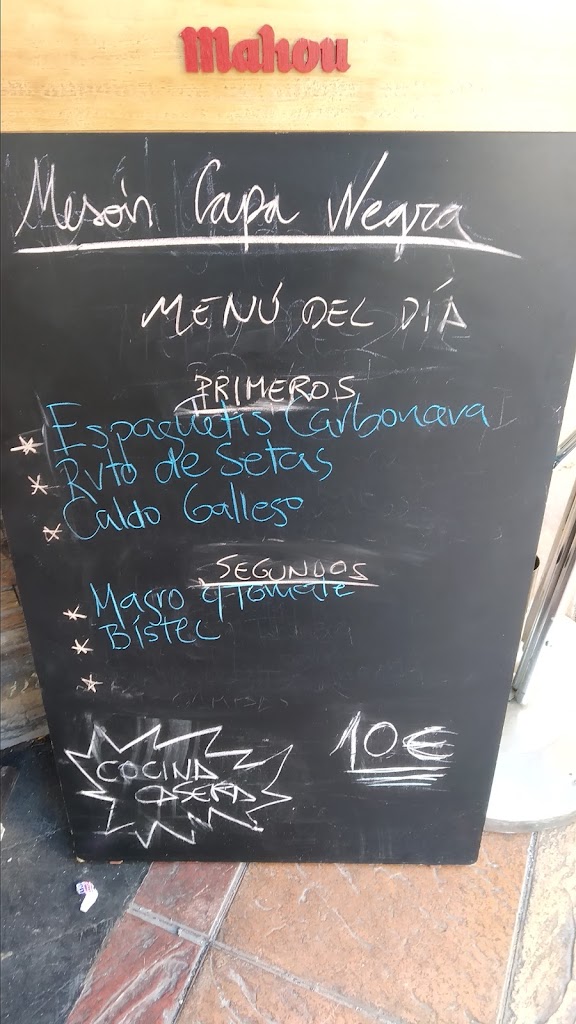 Mahou
Mesón Capa Negra
MENÚ DEL DÍA
PRIMEROS
* Espaguetis Carbonara
* Rvto de Setas
* Caldo Gallego
SEGUNDOS
* Magro c/Tomate
* Bistec
*
COCINA
CASERA
10€